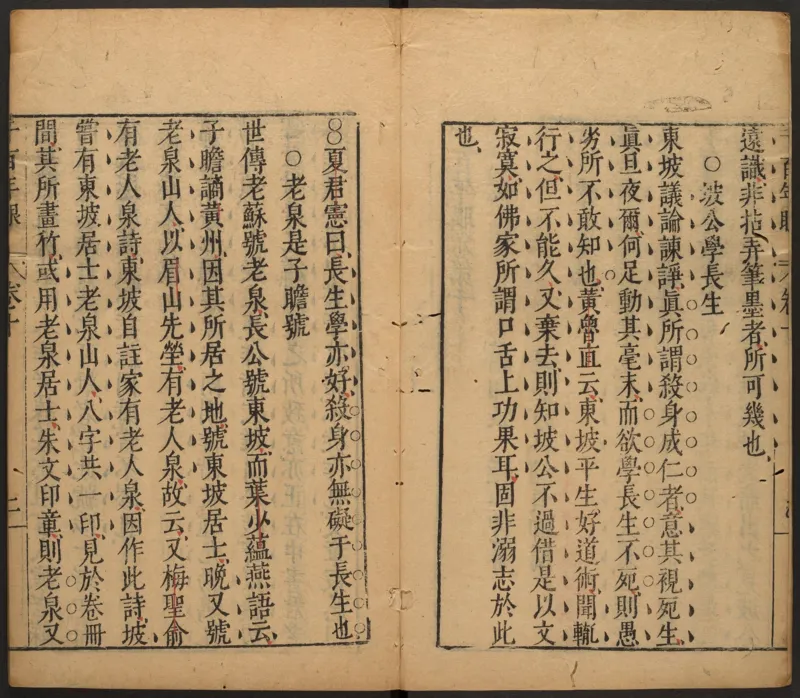 遠識非拈弄筆墨者所可幾也
○坡公學長生
東坡議論諫諍眞所謂殺身成仁者意其視死生
眞旦夜爾何足動其毫末而欲學長生不死則愚
劣所不敢知也黃魯直云東坡平生好道術聞輒
行之但不能久又棄去則知坡公不過借是以文
寂寞如佛家所謂口舌上功果耳固非溺志於此
也
○○夏君憲曰長生學亦好殺身亦無礙于長生也
○老泉是子瞻號
世傳老蘇號老泉長公號東坡而葉少蘊燕語云
子瞻謫黃州因其所居之地號東坡居士晚又號
老泉山人以眉山先塋有老人泉故云又梅聖俞
有老人泉詩東坡自註家有老人泉因作此詩坡
嘗有東坡居士老泉山人八字共一印見於卷冊
間其所畫竹或用老泉居士朱文印章則老泉又